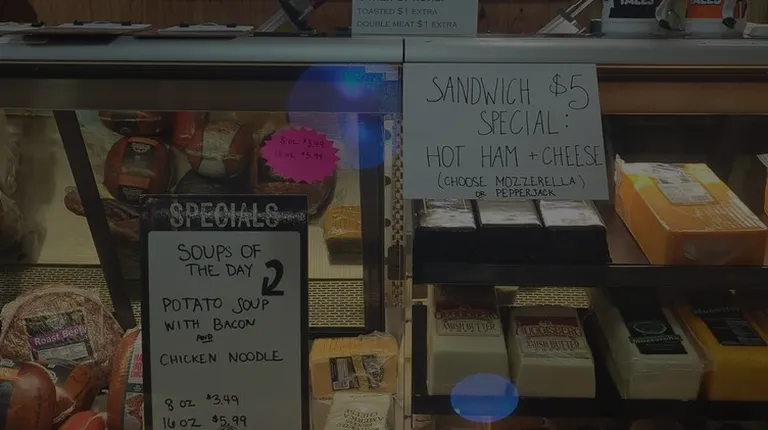 TOASTED $1 EXTRA
DOUBLE MEAT $1 EXTRA
SANDWICH $5
SPECIAL:
HOT HAM + CHEESE
(CHOOSE MOZZERELLA)
OR PEPPERJACK
8 oz $3.49
16 oz $5.99
SPECIALS
SOUPS OF
THE DAY
2
POTATO SOUP
WITH BACON
AND
CHICKEN NOODLE
8 oz $3.49
16 oz $5.99
Roast Beef